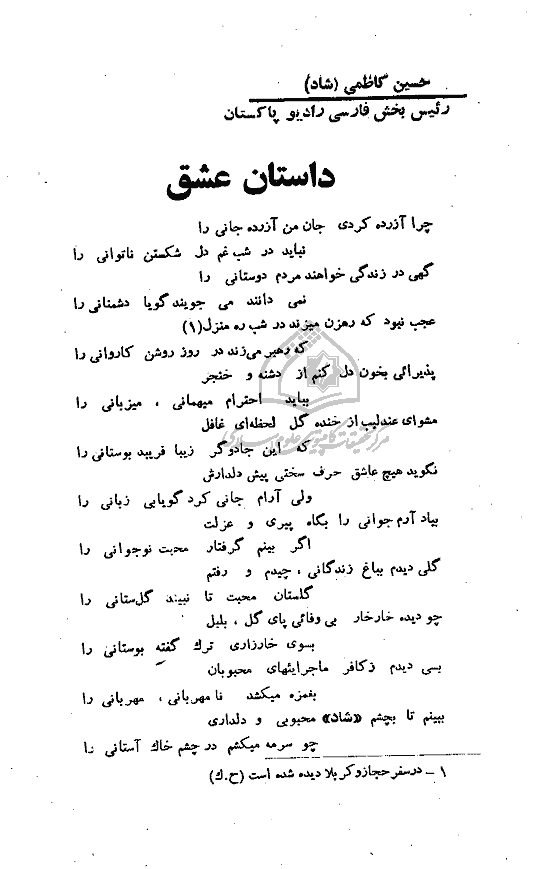 حسین کاظمی (شاد)
رئیس بخش فارسی رادیو پاکستان
داستان عشق
چرا آزرده کردی جان من آزرده جانی را
نباید در شب غم دل شکستن ناتوانی را
گهی در زندگی خواهند مردم دوستانی را
نمی دانند می جویند گویا دشمنانی را
عجب نبود که رهزن میزند در شب ره منزل(۱)
که رهبر می‌زند در روز روشن کاروانی را
پذیرائی بخون دل کنم از دشنه و خنجر
بباید احترام میهمانی ، میزبانی را
مشو ای عندلیب از خنده گل لحظه‌ای غافل
که این جادوگر زیبا فریبد بوستانی را
نگوید هیچ عاشق حرف سختی پیش دلدارش
ولی آرام جانی کرد گویایی زبانی را
بیاد آرم جوانی را بگاه پیری و عزلت
اگر بینم گرفتار محبت نوجوانی را
گلی دیدم بباغ زندگانی ، چیدم و رفتم
گلستان محبت تا نبیند گل‌ستانی را
چو دیده خارخار بی وفائی پای گل ، بلبل
بسوی خارزاری ترك گفته بوستانی را
بسی دیدم زکافر ماجرایئهای محبوبان
بغمزه میکشد نامهربانی ، مهربانی را
ببینم تا بچشم «شاد» محبوبی و دلداری
چو سرمه میکشم در چشم خاك آستانی را
۱ – درسفر حجاز و کربلا دیده شده است (ح.ك)
مرکز تحقیقات کامپیوتری علوم اسلامی